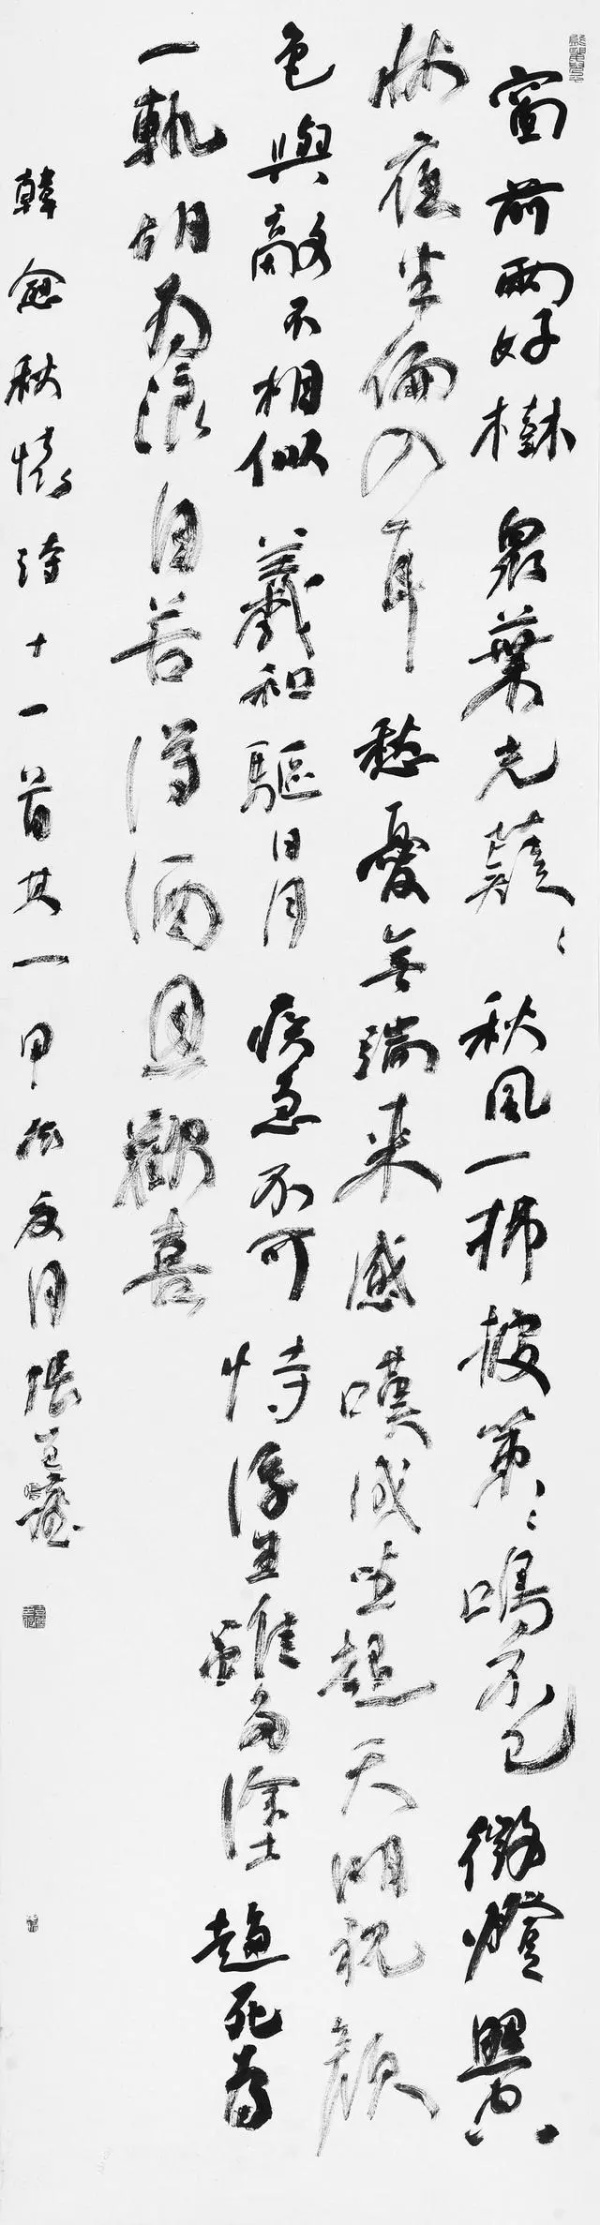 窗前兩好樹衆葉光薿〻秋風一拂披策〻鳴不已微燈照空
牀夜半偏入耳愁憂無端來感嘆成坐起天明視顏
色與故不相似羲和驅日月疾急不可恃浮生雖多塗趨死
一軌胡為浪自苦得酒且歡喜
韓愈秋懷詩十一首其一甲辰夏月張